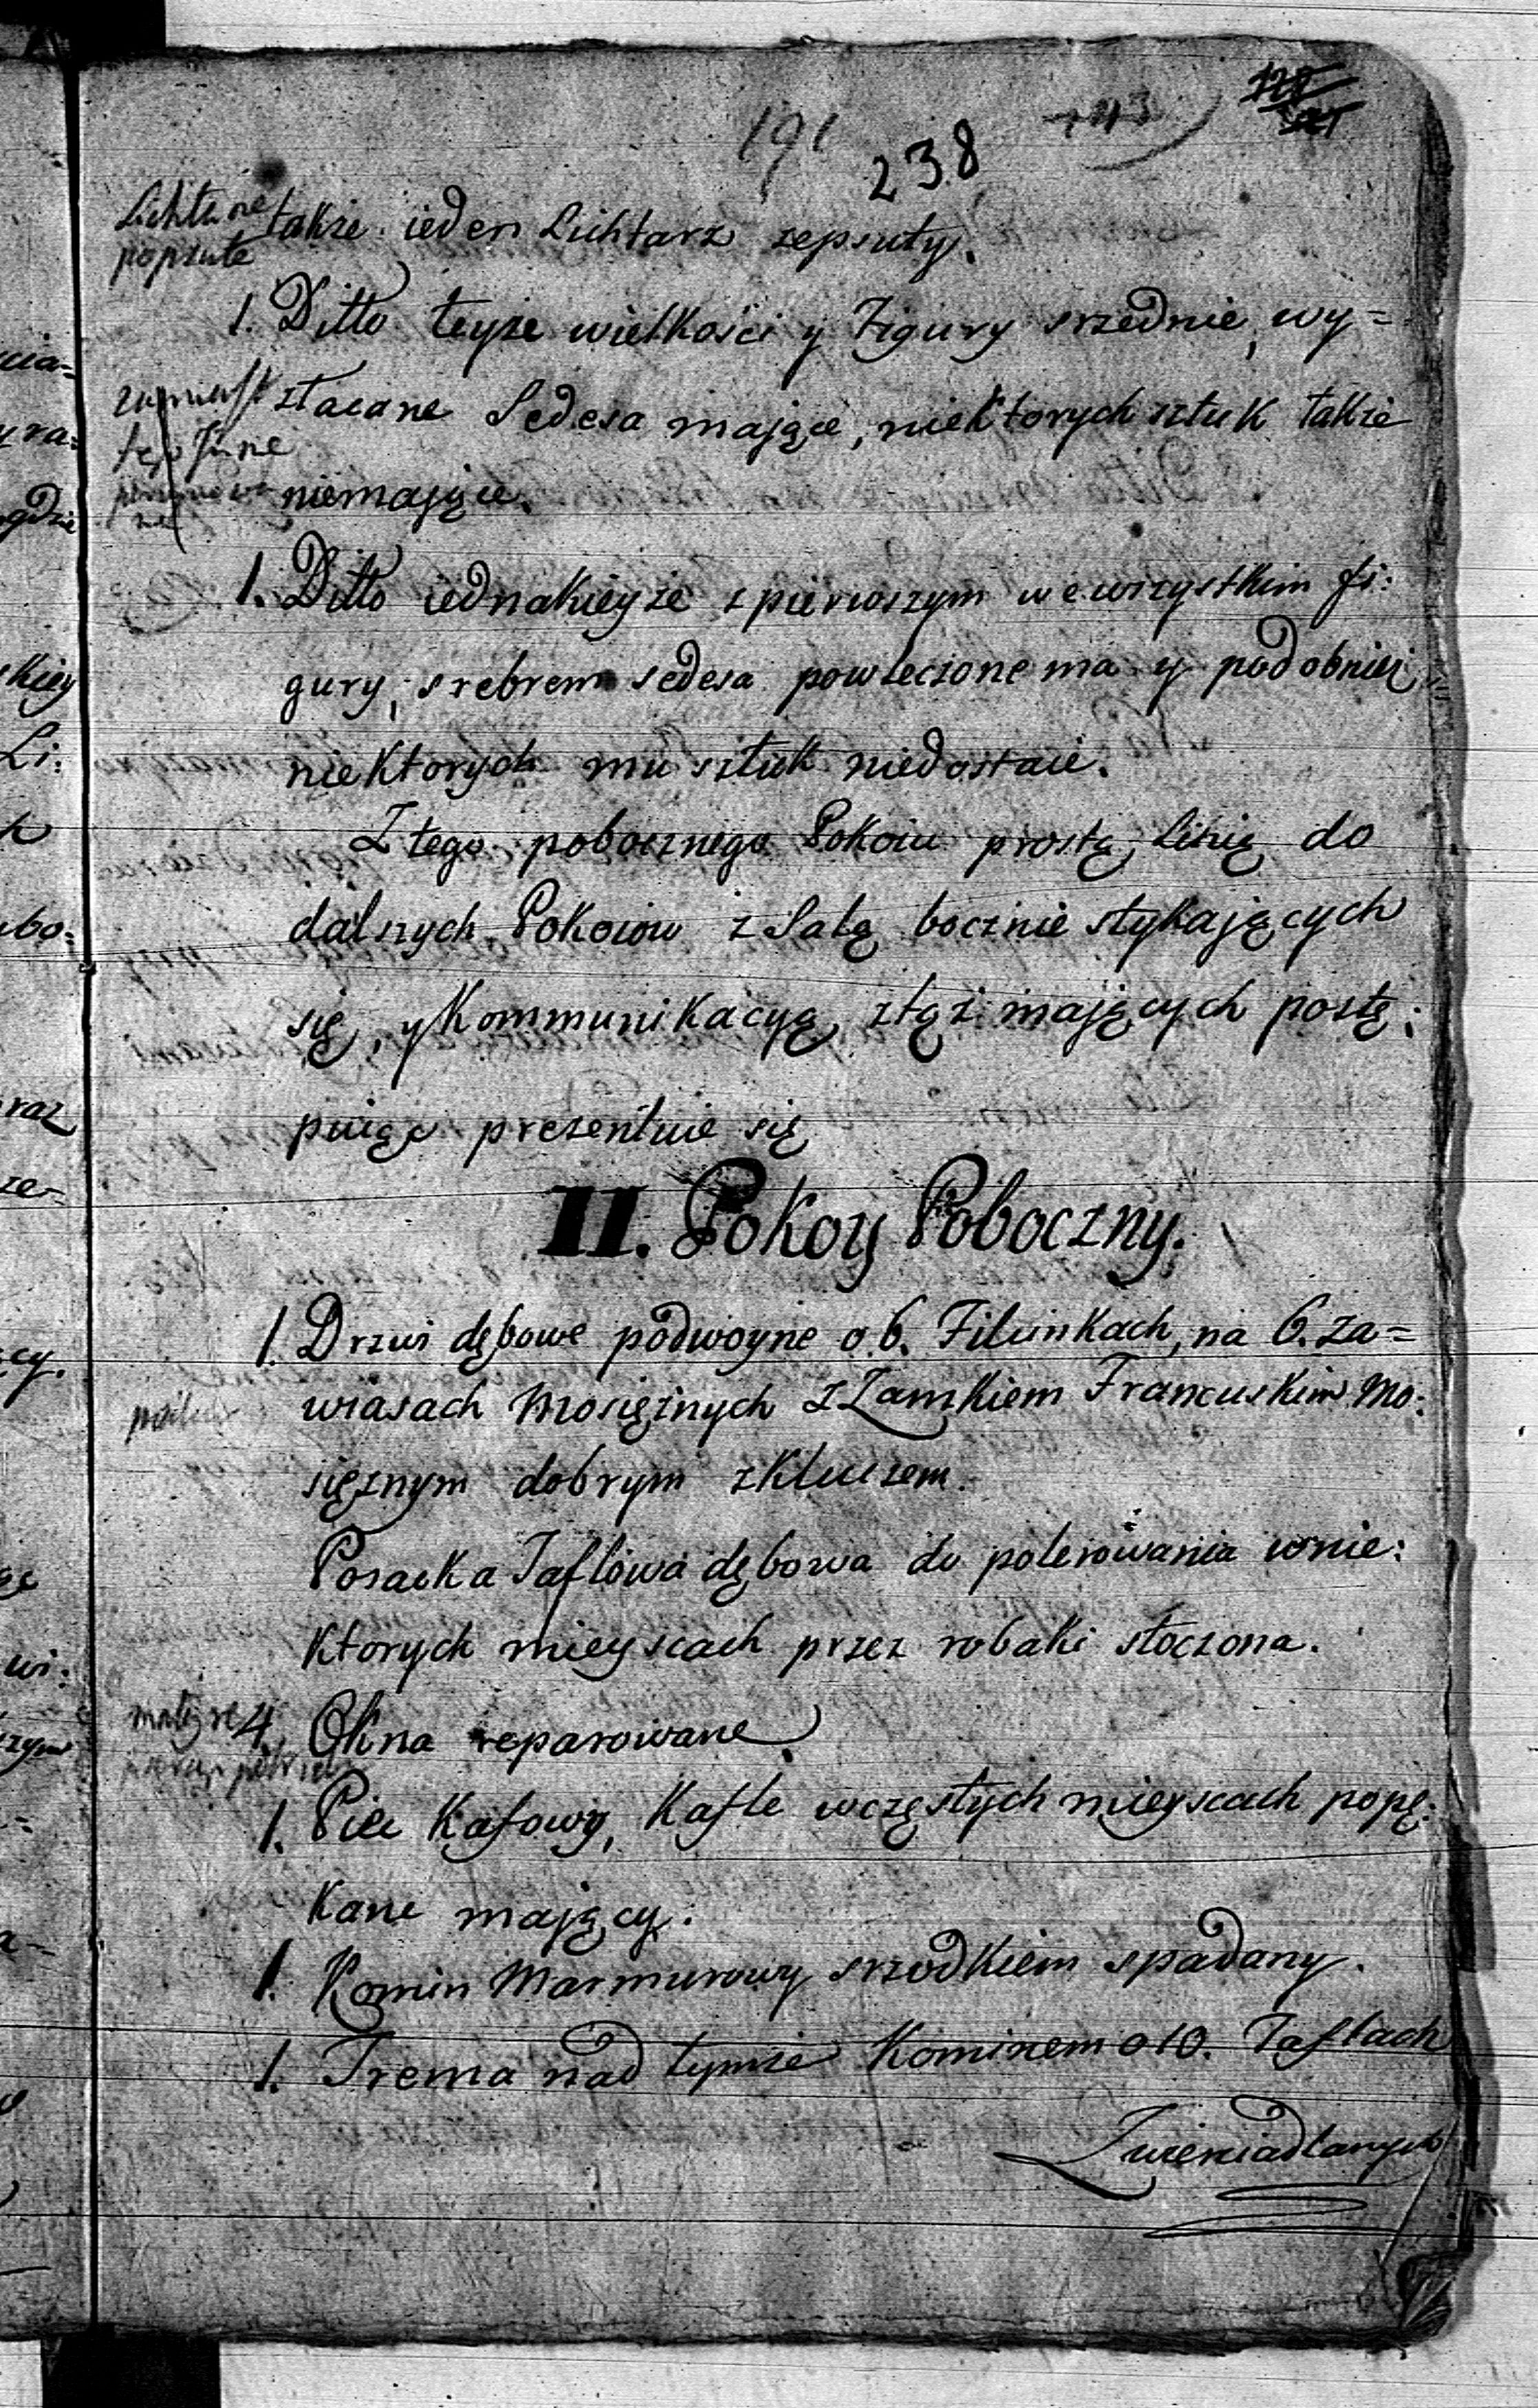 191
238
Lichtarze
popsute
także ieden Lichtarz zepsuty.
1. Ditto teyże wielkości y Figury srzednie, wy=
złacane Sedesa mające, niektorych sztuk także
niemające.
1. Ditto iednakieyże z pierwszym we wszystkim fi:
gury, srebrem sedesa powleczone ma y podobnież
niektorych mu sztuk niedostaie.
Z tego pobocznego Pokoiu prostą Linią do
dalszych Pokoiow z Salą bocznie stykających
się, y Kommunikacyą z tąż mających postę:
puiąc prezentuie się
II. Pokoy Poboczny.
1. Drzwi dębowe podwoyne o 6. Filunkach, na 6. za=
wiasach Mosiężnych z Zamkiem Francuskim Mo:
siężnym dobrym z Kluczem.
Posacka Taflowa dębowa do polerowania w nie:
ktorych mieyscach przez robaki stoczona.
4. Okna reparowane.
1. Piec Kafowy, Kafle w częstych mieyscach popę:
kane mający.
1. Komin Marmurowy srzodkiem spadany.
1. Trema nad tymże Kominem o 10. Taflach
Zwierciadlanych